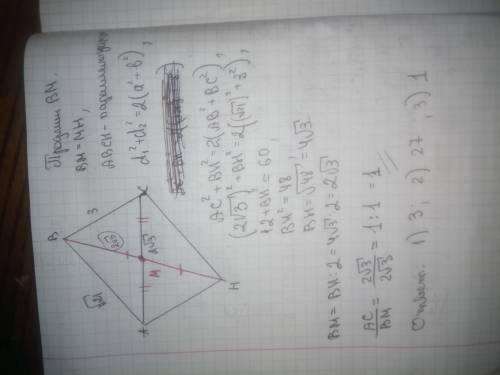 Продлим BM.
BM = MH,
ABCH - параллелограмм
d₁² + d₂² = 2(a² + b²),
AC² + BH² = 2(AB² + BC²)
(2√3)² + BH² = 2((√21)² + 3²),
12 + BH = 60,
BH² = 48
BH = √48 = 4√3
BM = BH : 2 = 4√3 : 2 = 2√3
AC/BM = 2√3/2√3 = 1 : 1 = 1
Ответ: 1) 3; 2) 27, 3) 1
B
3
√21
2√3
2√3
M
A
H